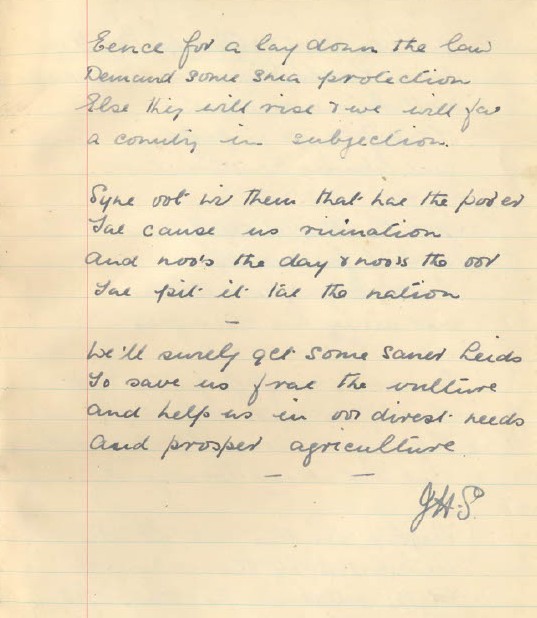 Eence for a lay down the law
Demand some sma protection
Else they will rise & we will fa
a country in subjection.
Syne oot wi' them that hae the power
Tae cause us ruination
And noo's the day & noo's the oor
Tae pit it tae the nation
We'll surely get some saner heids
To save us frae the vulture
And help us in oor direst needs
And prosper agriculture
J.H.S.